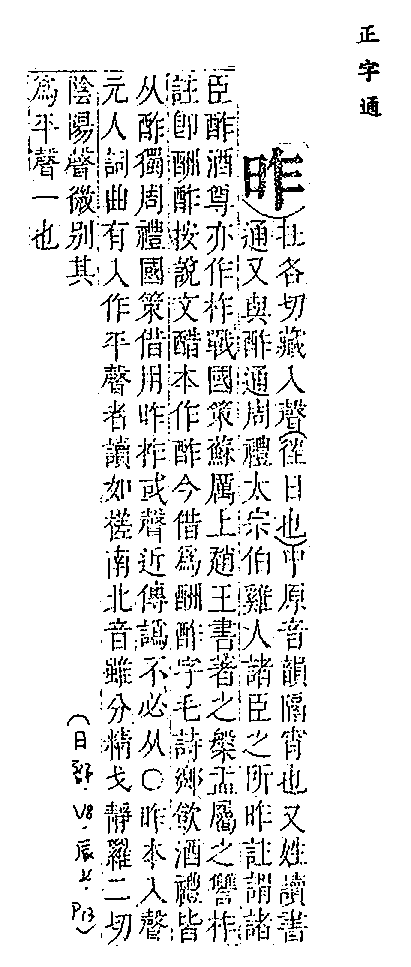 正字通
昨
杜各切藏入聲(徃日也)中原音韻隔宵也又姓讀書
通又與酢通周禮太宗伯雞人諸臣之所昨註謂諸
臣酢酒尊亦作柞戰國策蘇厲上趙王書著之槃盂屬之讐柞
註卽酬酢按說文醋本作酢今借爲酬酢字毛詩鄉飮酒禮皆
从酢獨周禮國策借用昨柞或聲近傳譌不必从○昨本入聲
元人詞曲有入作平聲者讀如槎南北音雖分精戈靜羅二切
陰陽聲微别其
爲平聲一也
(日部.V8.辰上.P13)